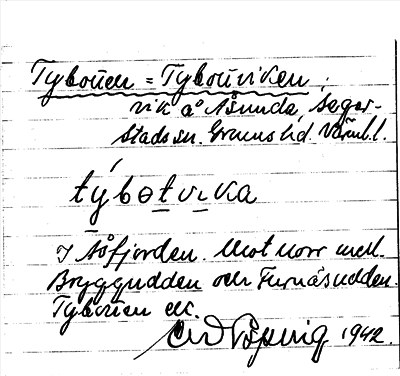 Tyboŭen = Tyboŭviken,
vik å Åsunda, Seger-
stads sn. Grums hd. Värml. l.
týbotvɩka
I Åsfjorden. Mot norr mell.
Bryggudden och Furnäsudden.
Tyboŭen etc.
1942.